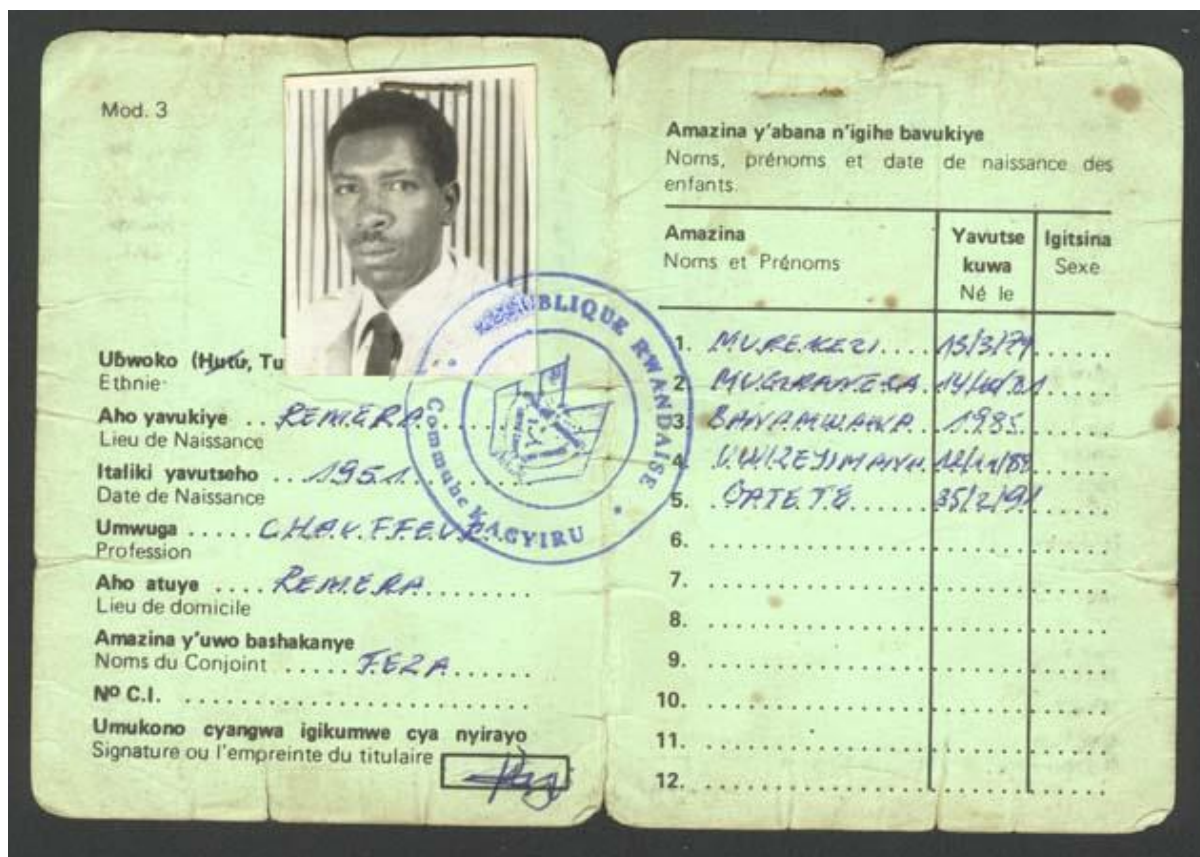 Mod. 3
Ubwoko (Hutu, Tu
Ethnie
Aho yavukiye .. REMERA
Lieu de Naissance
Italiki yavutseho .. 1951
Date de Naissance
Umwuga ..... CHAUFFEUR
Profession
Aho atuye .... REMERA ........
Lieu de domicile
Amazina y'uwo bashakanye
Noms du Conjoint ..... FEZA ......
Nº C.I. ........................
Umukono cyangwa igikumwe cya nyirayo
Signature ou l'empreinte du titulaire
REPUBLIQUE RWANDAISE
Commune KACYIRU
Amazina y'abana n'igihe bavukiye
Noms, prénoms et date de naissance des
enfants.
Amazina Yavutse Igitsina
Noms et Prénoms kuwa Sexe
Né le
1. MUREKEZI
2. MUGIRANEZA
3. 1985
4. UWIZEYIMANA
5.
6.
7.
8.
9.
10.
11.
12.